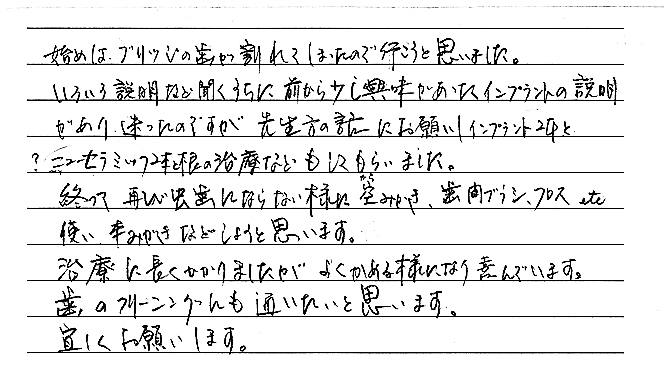 始めは、ブリッジの歯が割れてしまったので行こうと思いました。
いろいろ説明など聞くうちに前から少し興味があったインプラントの説明
があり、迷ったのですが先生方の話にお願いしインプラント2本と
? セラミック2本根の治療などもしてもらいました。
終って再び虫歯にならない様に空みがき、歯間ブラシ、フロス etc
から
使い、歯みがきなどしようと思います。
治療に長くかかりましたが よくかめる様になり喜んでいます。
歯のクリーニングにも通いたいと思います。
宜しくお願いします。